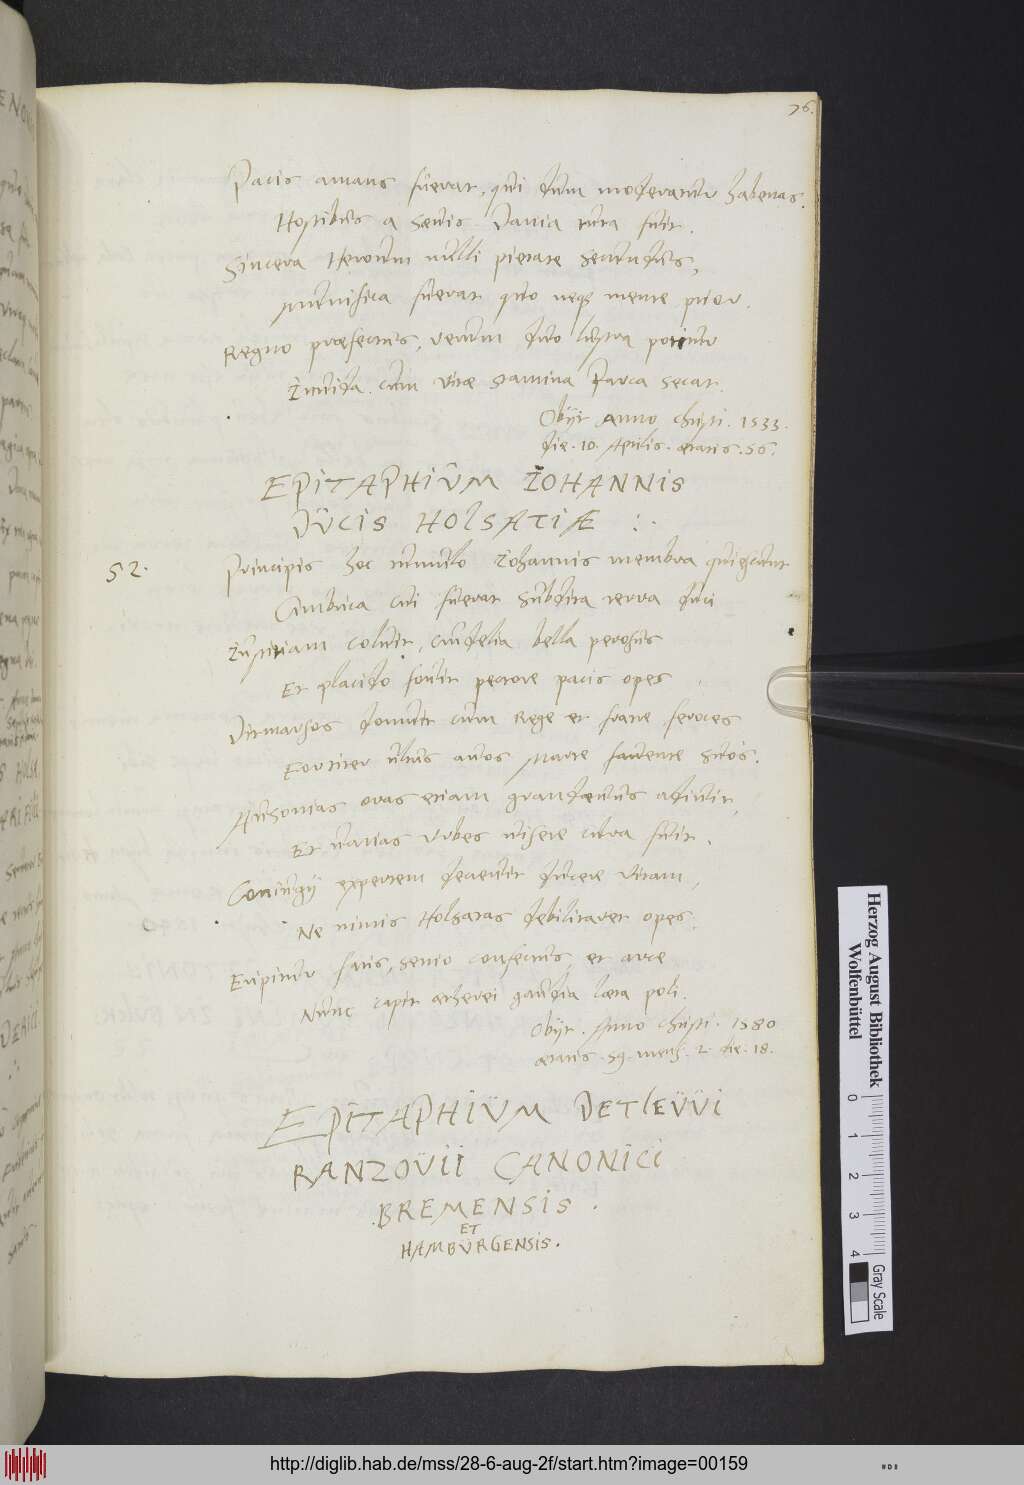 76.
Pacis amans fuerat, qui dum moderatur habenas.
Hostibus a saevis Dania tuta fuit.
Sincera Heroum nulli pietate secundus,
Munifica fuerat quo neque mente prior.
Regno praefectus, verum duo lustra potitur
Invida cum vitae stamina Parca secat.
Obijt Anno Christi. 1533.
die. 10. Aprilis. aetatis. 56.
EPITAPHIUM IOHANNIS
DUCIS HOLSATIÆ
52.
Principis hoc tumulo Iohannis membra quiescunt
Cimbrica cui fuerat subdita terra duci
Iustitiam coluit, crudelia bella perosus
Et placido fouit pectore pacis opes
Ditmarsos domuit cum Rege et fratre feroces
Fortiter ultus auos Marte fauente suos.
Ausonias oras etiam grandaeuus adiuit,
Et uarias Urbes uisere cura fuit.
Coniugij expertem decreuit ducere vitam,
Ne nimis Holsatas debilitaret opes.
Eripitur fatis, senio confectus, et arce
Nunc capit aetherei gaudia laeta poli.
Obijt. Anno Christi. 1580
aetatis. 59. mens. 2. die. 18.
EPITAPHIUM DETLEUUI
RANZOUII CANONICI
BREMENSIS.
ET
HAMBURGENSIS.
Herzog August Bibliothek
Wolfenbüttel
0 1 2 3 4
Gray Scale
http://diglib.hab.de/mss/28-6-aug-2f/start.htm?image=00159